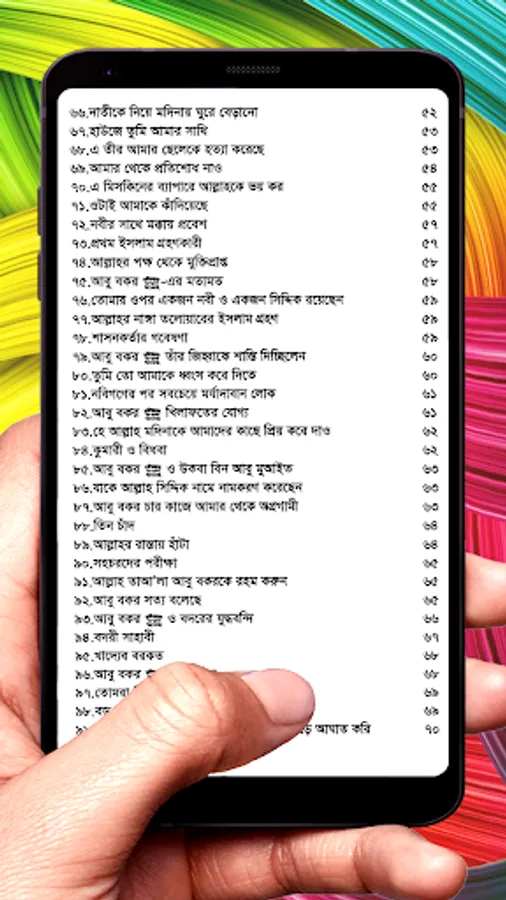 ৬৬.নাতীকে নিয়ে মদিনায় ঘুরে বেড়ানো ৫২
৬৭.হাউজে তুমি আমার সাথি ৫৩
৬৮.এ তীর আমার ছেলেকে হত্যা করেছে ৫৩
৬৯.আমার থেকে প্রতিশোধ নাও ৫৪
৭০.এ মিসকিনের ব্যাপারে আল্লাহকে ভয় কর ৫৫
৭১.ওটাই আমাকে কাঁদিয়েছে ৫৫
৭২.নবীর সাথে মক্কায় প্রবেশ ৫৭
৭৩.প্রথম ইসলাম গ্রহণকারী ৫৭
৭৪.আল্লাহর পক্ষ থেকে মুক্তিপ্রাপ্ত ৫৮
৭৫.আবু বকর -এর মতামত ৫৮
৭৬.তোমার ওপর একজন নবী ও একজন সিদ্দিক রয়েছেন ৫৯
৭৭.আল্লাহর নাঙ্গা তলোয়ারের ইসলাম গ্রহণ ৫৯
৭৮.শাসনকর্তার গবেষণা ৫৯
৭৯.আবু বকর তাঁর জিহ্বাকে শাস্তি দিচ্ছিলেন ৬০
৮০.তুমি তো আমাকে ধ্বংস করে দিতে ৬০
৮১.নবিগণের পর সবচেয়ে মর্যাদাবান লোক ৬১
৮২.আবু বকর খিলাফতের যোগ্য ৬১
৮৩.হে আল্লাহ মদিনাকে আমাদের কাছে প্রিয় করে দাও ৬২
৮৪.কুমারী ও বিধবা ৬২
৮৫.আবু বকর ও উকবা বিন আবু মুআইত ৬৩
৮৬.যাকে আল্লাহ সিদ্দিক নামে নামকরণ করেছেন ৬৩
৮৭.আবু বকর চার কাজে আমার থেকে অগ্রগামী ৬৩
৮৮.তিন চাঁদ ৬৪
৮৯.আল্লাহর রাস্তায় হাঁটা ৬৪
৯০.সহচরদের পরীক্ষা ৬৫
৯১.আল্লাহ তাআ'লা আবু বকরকে রহম করুন ৬৫
৯২.আবু বকর সত্য বলেছে ৬৫
৯৩.আবু বকর ও বদরের যুদ্ধবন্দি ৬৬
৯৪.বদরী সাহাবী ৬৭
৯৫.খাদ্যের বরকত ৬৮
৯৬.আবু বকর ৬৮
৯৭.তোমরা ৬৯
৯৮. ৬৯
আঘাত করি ৭০